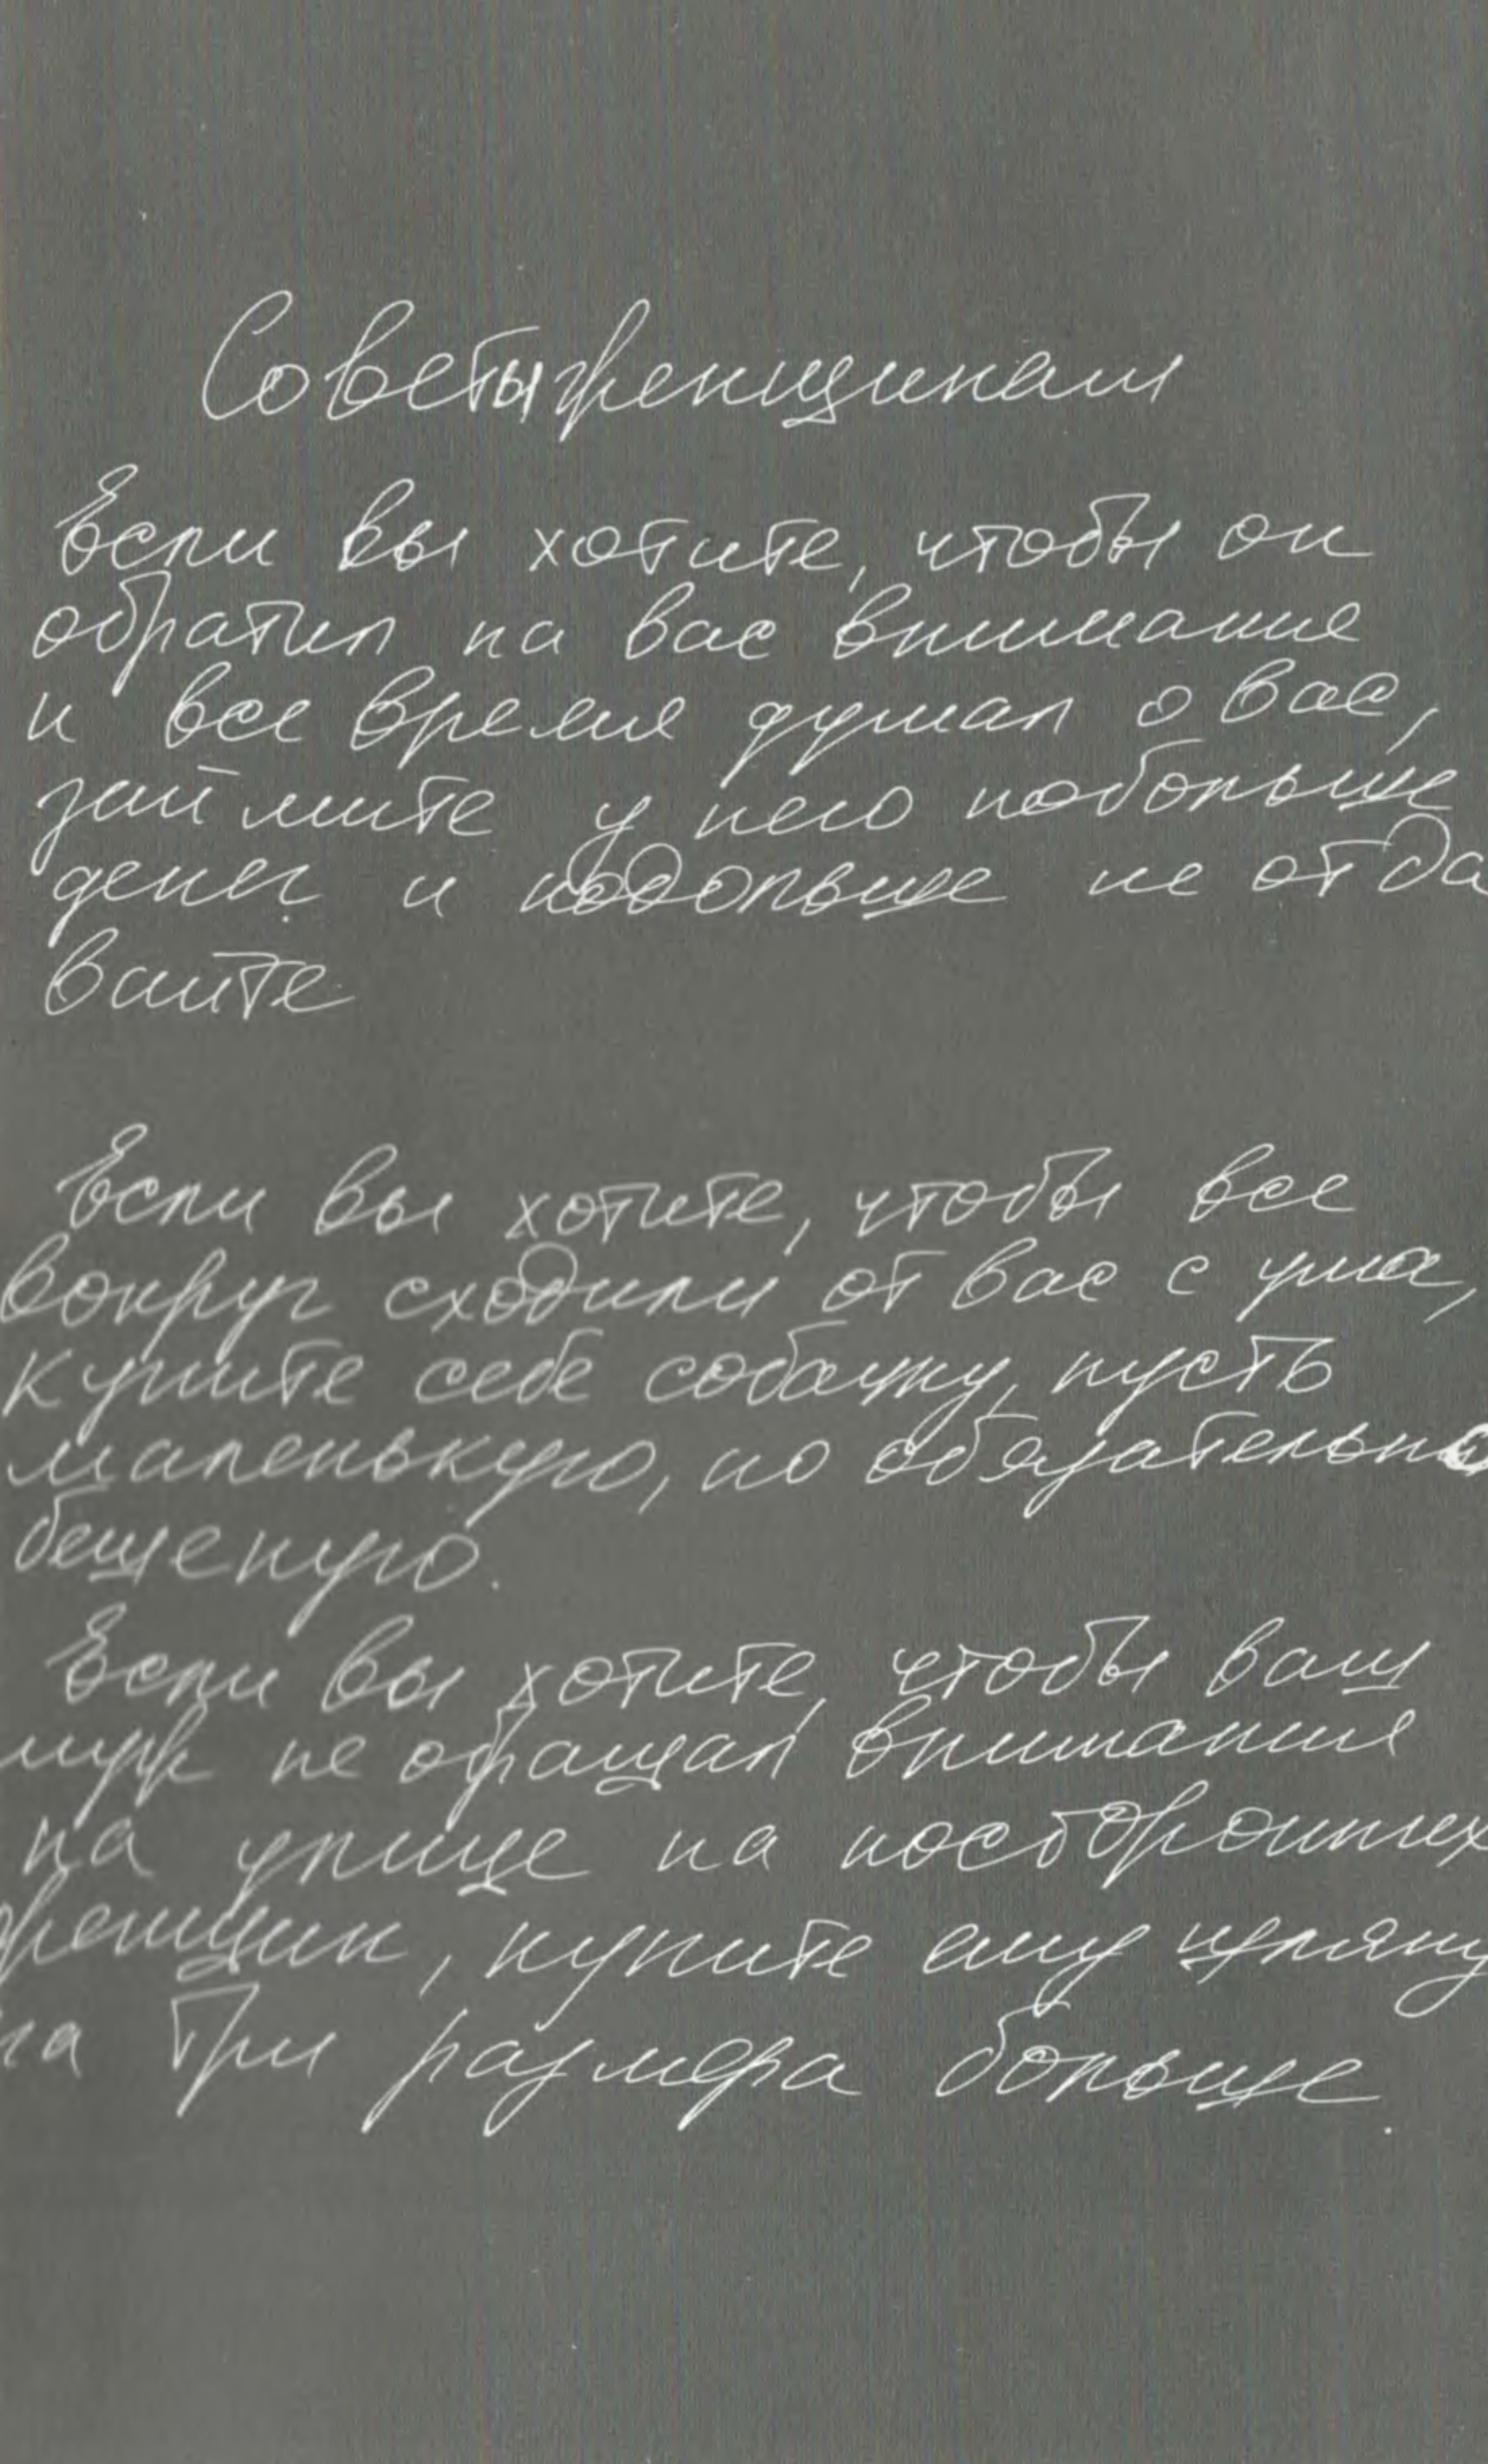 Советы женщинам
Если вы хотите, чтобы он
обратил на вас внимание
и все время думал о вас,
займите у него побольше
денег и подольше не отда
вайте
Если вы хотите, чтобы все
вокруг сходили от вас с ума,
купите себе собачку, пусть
маленькую, но обязательно
бешеную.
Если вы хотите, чтобы ваш
муж не обращал внимания
на улице на посторонних
женщин, купите ему шляпу
на три размера больше.